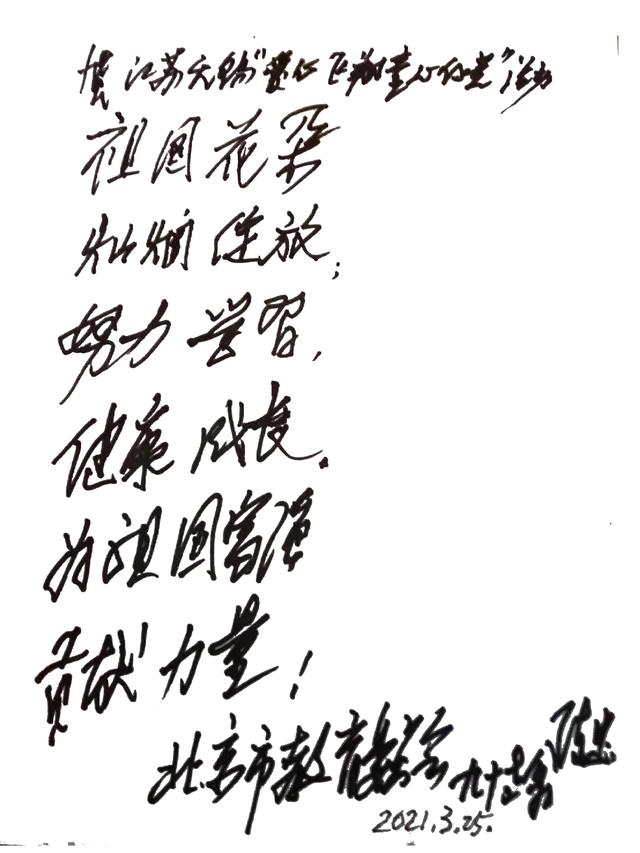 贺江苏无锡"心飞翔童心向党"活动
祖国花朵
灿烂绽放;
努力学习,
健康成长。
为祖国富强
贡献力量!
北京市教育
2021.3.25.